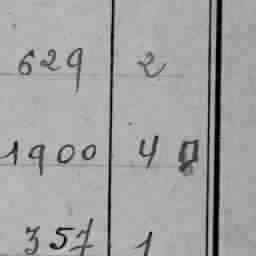 629 2
1900 40
357 1